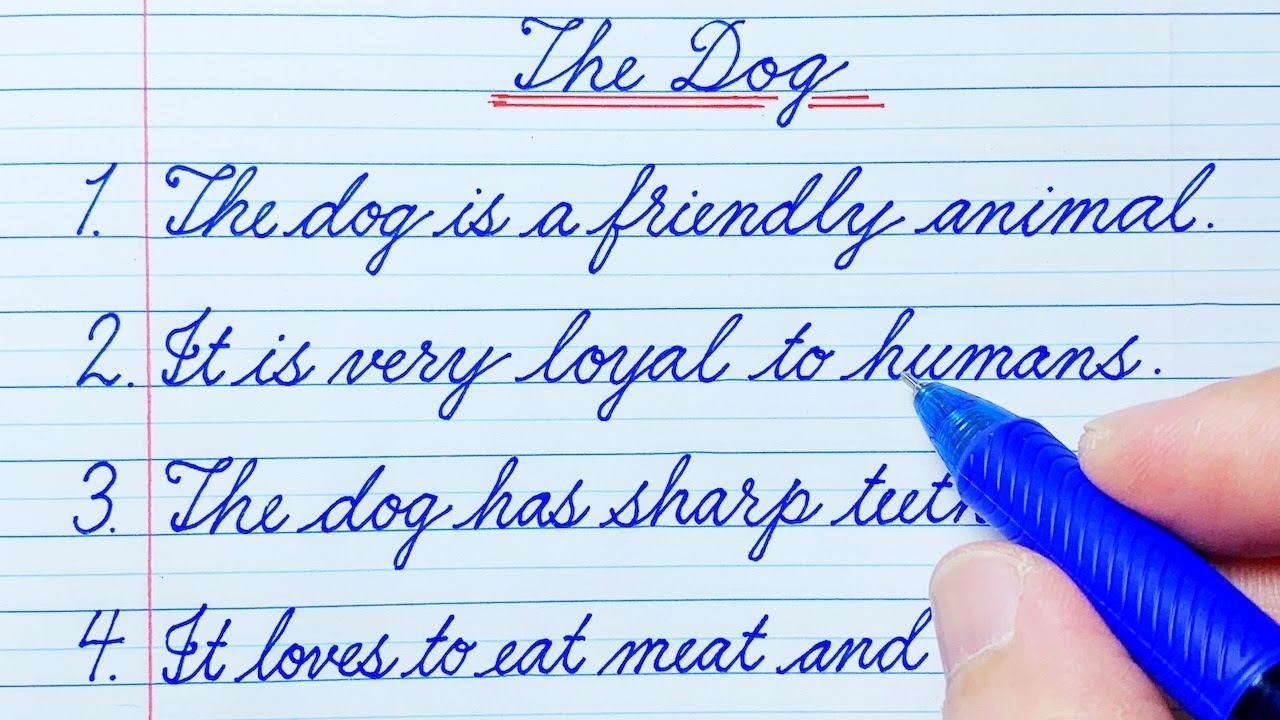 The Dog
1. The dog is a friendly animal.
2. It is very loyal to humans.
3. The dog has sharp teeth
4. It loves to eat meat and